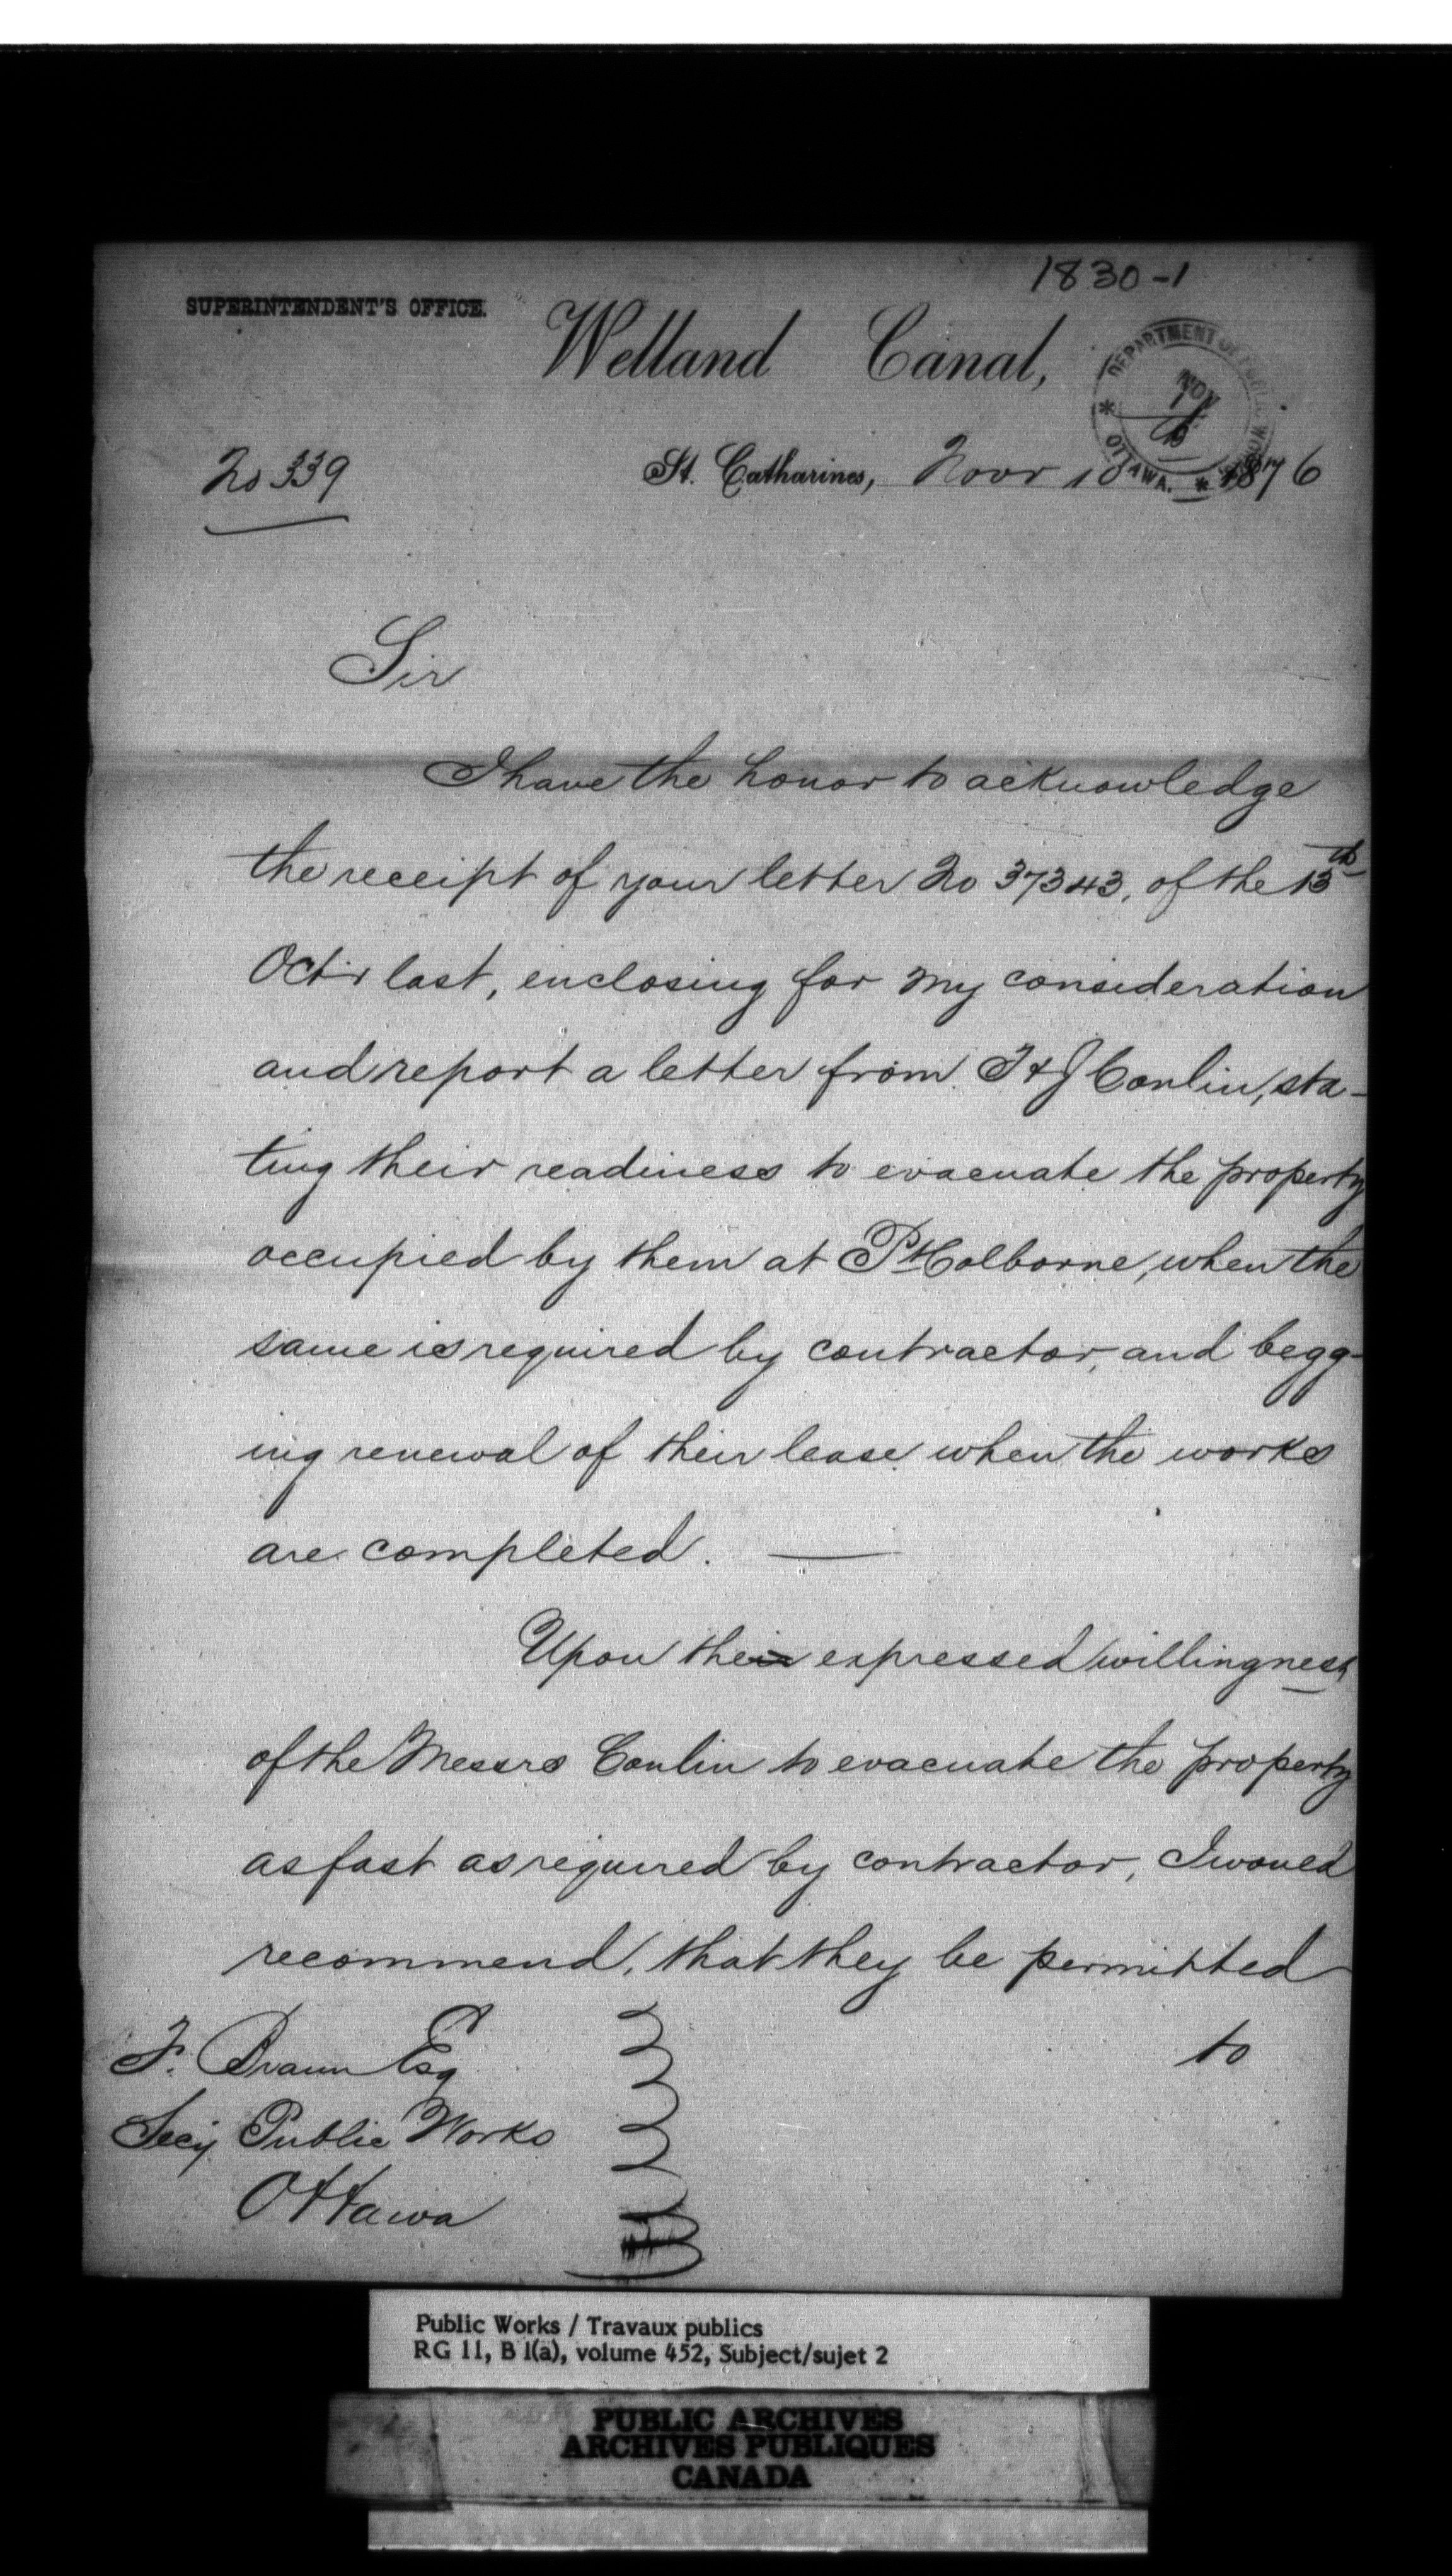 1830-1
SUPERINTENDENT'S OFFICE.
Welland Canal,
DEPARTMENT OF PUBLIC WORKS
NOV
OTTAWA.
No 339
St. Catharines, Novr 10 1876
Sir
I have the honor to acknowledge
the receipt of your letter No 37343, of the 13th
Octr last, enclosing for my consideration
and report a letter from T & J Conlin, sta-
ting their readiness to evacuate the property
occupied by them at Pt Colborne, when the
same is required by contractor, and begg-
ing renewal of their lease when the works
are completed. —
Upon their expressed willingness
of the Messrs Conlin to evacuate the property
as fast as required by contractor, I would
recommend, that they be permitted
to
F. Braun Esq
Secy Public Works
Ottawa
Public Works / Travaux publics
RG 11, B 1(a), volume 452, Subject/sujet 2
PUBLIC ARCHIVES
ARCHIVES PUBLIQUES
CANADA